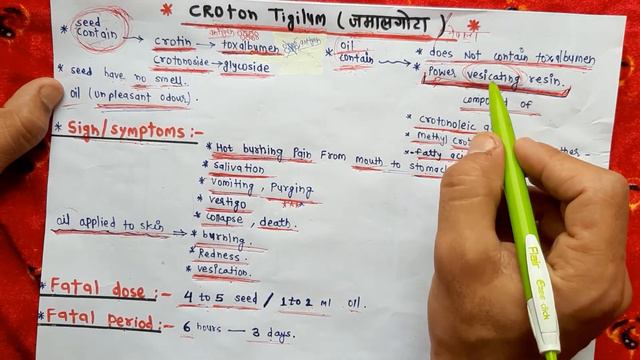 * CROTON Tigilum (जमालगोटा) *
* seed contain → crotin → toxalbumen
crotonoside → glycoside
* seed have no smell.
oil (unpleasant odour).
* oil contain → * does Not contain toxalbumen
* Power vesicating resin.
compound of
* crotonoleic
* Methyl
* fatty
* Sign/symptoms :-
* Hot burning Pain From mouth to
* salivation
* vomiting, Purging
* vertigo
* collapse, death.
oil applied to skin → * burning.
* Redness.
* vesication.
* Fatal dose :- 4 to 5 seed / 1 to 2 ml oil.
* Fatal period :- 6 hours — 3 days.
Flair